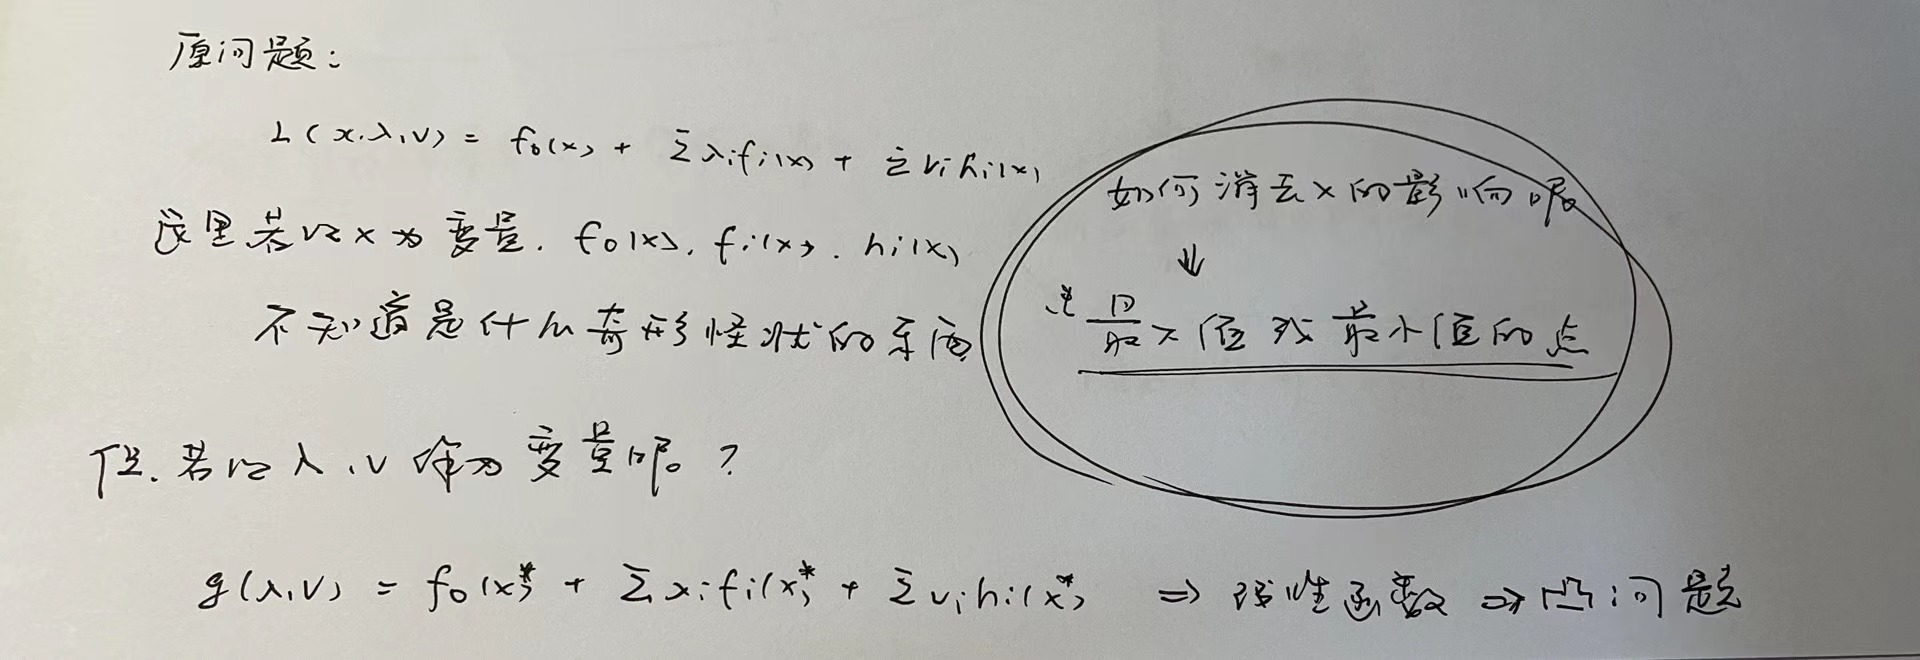 原问题:
L(x,λ,ν) = f₀(x) + Σλᵢfᵢ(x) + Σνᵢhᵢ(x)
这里若以x为变量, f₀(x), fᵢ(x), hᵢ(x)
不知道是什么奇形怪状的东西
如何消去x的影响呢
↓
最大值或最小值的点
但,若以λ,ν作为变量呢?
g(λ,ν) = f₀(x*) + Σλᵢfᵢ(x*) + Σνᵢhᵢ(x*) ⇒ 线性函数 ⇒ 凸问题